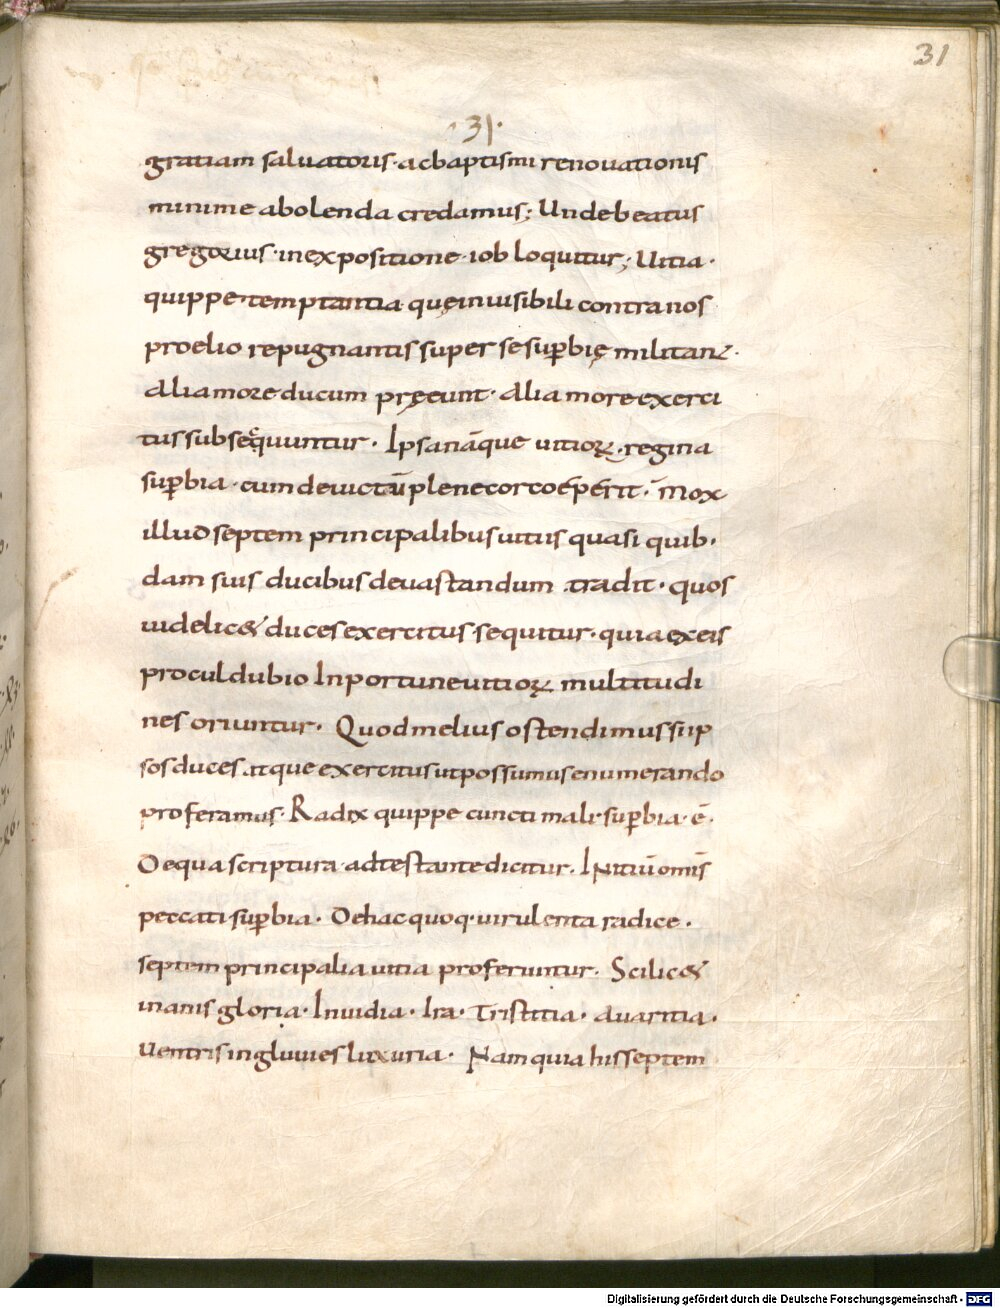 31
·31·
gratiam saluatoris · ac baptismi renouationis
minime abolenda credamus; Unde beatus
gregorius · in expositione · iob loquitur; Uitia ·
quippe temptantia quę inuisibili contra nos
proelio repugnantis super se suꝑbię militant ·
Alia more ducum pręeunt · Alia more exerci
tus subsequuntur · Ipsa nāque uitioꝝ · regina
suꝑbia · cum deuictū plene cor coeperit · mox
illud septem principalibus uitiis quasi quib·
dam suis ducibus deuastandum tradit · quos
uidelic& duces exercitus sequitur · quia ex eis
procul dubio Inportune uitioꝝ multitudi
nes oriuntur · Quod melius ostendimus si ip
sos duces atque exercitus ut possumus enumerando
proferamus · Radix quippe cuncti mali · suꝑbia · ē ·
De qua scriptura adtestante dicitur · INitiū omīs
peccati suꝑbia · De hac quoq· uirulenta radice ·
septem principalia uitia proferuntur · Scilic&
inanis gloria · Inuidia · Ira · Tristitia · Auaritia ·
Uentris ingluuies luxuria · Nam quia his septem
Digitalisierung gefördert durch die Deutsche Forschungsgemeinschaft - DFG